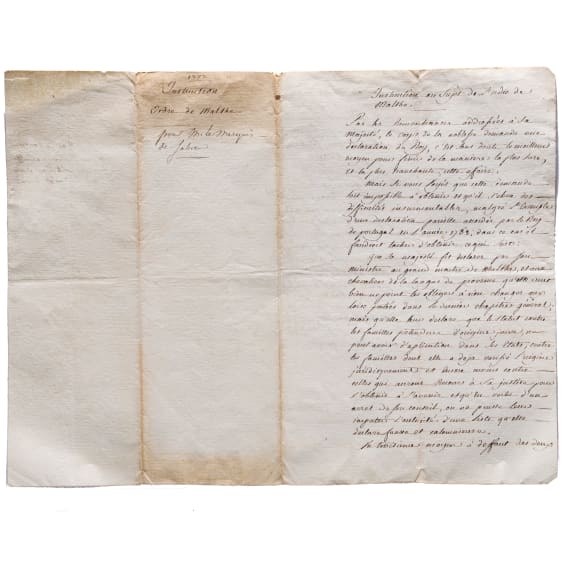 1777
Instruction
Ordre de Malthe
pour Mr. le Marquis
de Salve
Instruction au Sujet de l'ordre de
Malthe.
Par les Remontrances addressées à Sa
Majesté, le corps de la noblesse demande une
declaration du Roy, c'est sans doute le meilleur
moyen pour finir de la maniere la plus sure,
et la plus tranchante, cette affaire.
Mais Si vous jugés que cette demande
soit impossible à obtenir et qu'il s'eleve des
difficultés insurmontables, malgré l'exemple
d'une declaration pareille accordée par le Roy
de portugal en l'année 1763; dans ce cas il
faudroit tacher d'obtenir ce qui suit:
Que Sa majesté fit declarer par son
ministre au grand maitre de Malthe, et aux
chevaliers de la langue de provence qu'elle veut
bien ne point les obliger à rien changer aux
loix faites dans le dernier chapitre général;
mais qu'elle leur declare que le Statut contre
les familles pretendues d'origine juive, ne
peut avoir d'aplication dans les Etats, contre
les familles dont elle a deja verifié l'origine
juridiquement et encore moins contre
celles qui auront Recours à Sa justice pour
l'obtenir à l'avenir et qu'en vertu d'un
arret de son conseil, on ne puisse leur
imputer l'autorité d'une liste qu'elle
declare fausse et calomnieuse.
Le troisieme moyen à deffaut des deux